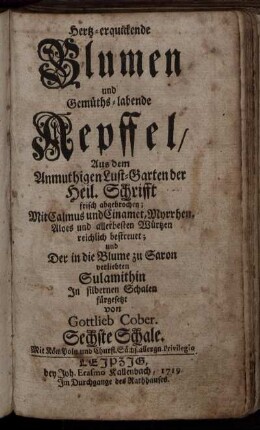 Hertz-erquickende
Blumen
und
Gemüths-labende
Aepffel/
Aus dem
Anmuthigen Lust-Garten der
Heil. Schrifft
frisch abgebrochen;
Mit Calmus und Cinamet, Myrrhen,
Aloes und allerbesten Würtzen
reichlich bestreuet;
und
Der in die Blume zu Saron
verliebten
Sulamithin
In silbernen Schalen
fürgesetzt
von
Gottlieb Cober.
Sechste Schale.
Mit Kön. Poln. und Churfl. Sächs. allergn. Privilegio
LEIPZIG,
bey Joh. Erasmo Kallenbach, 1719.
Im Durchgange des Rathhauses.